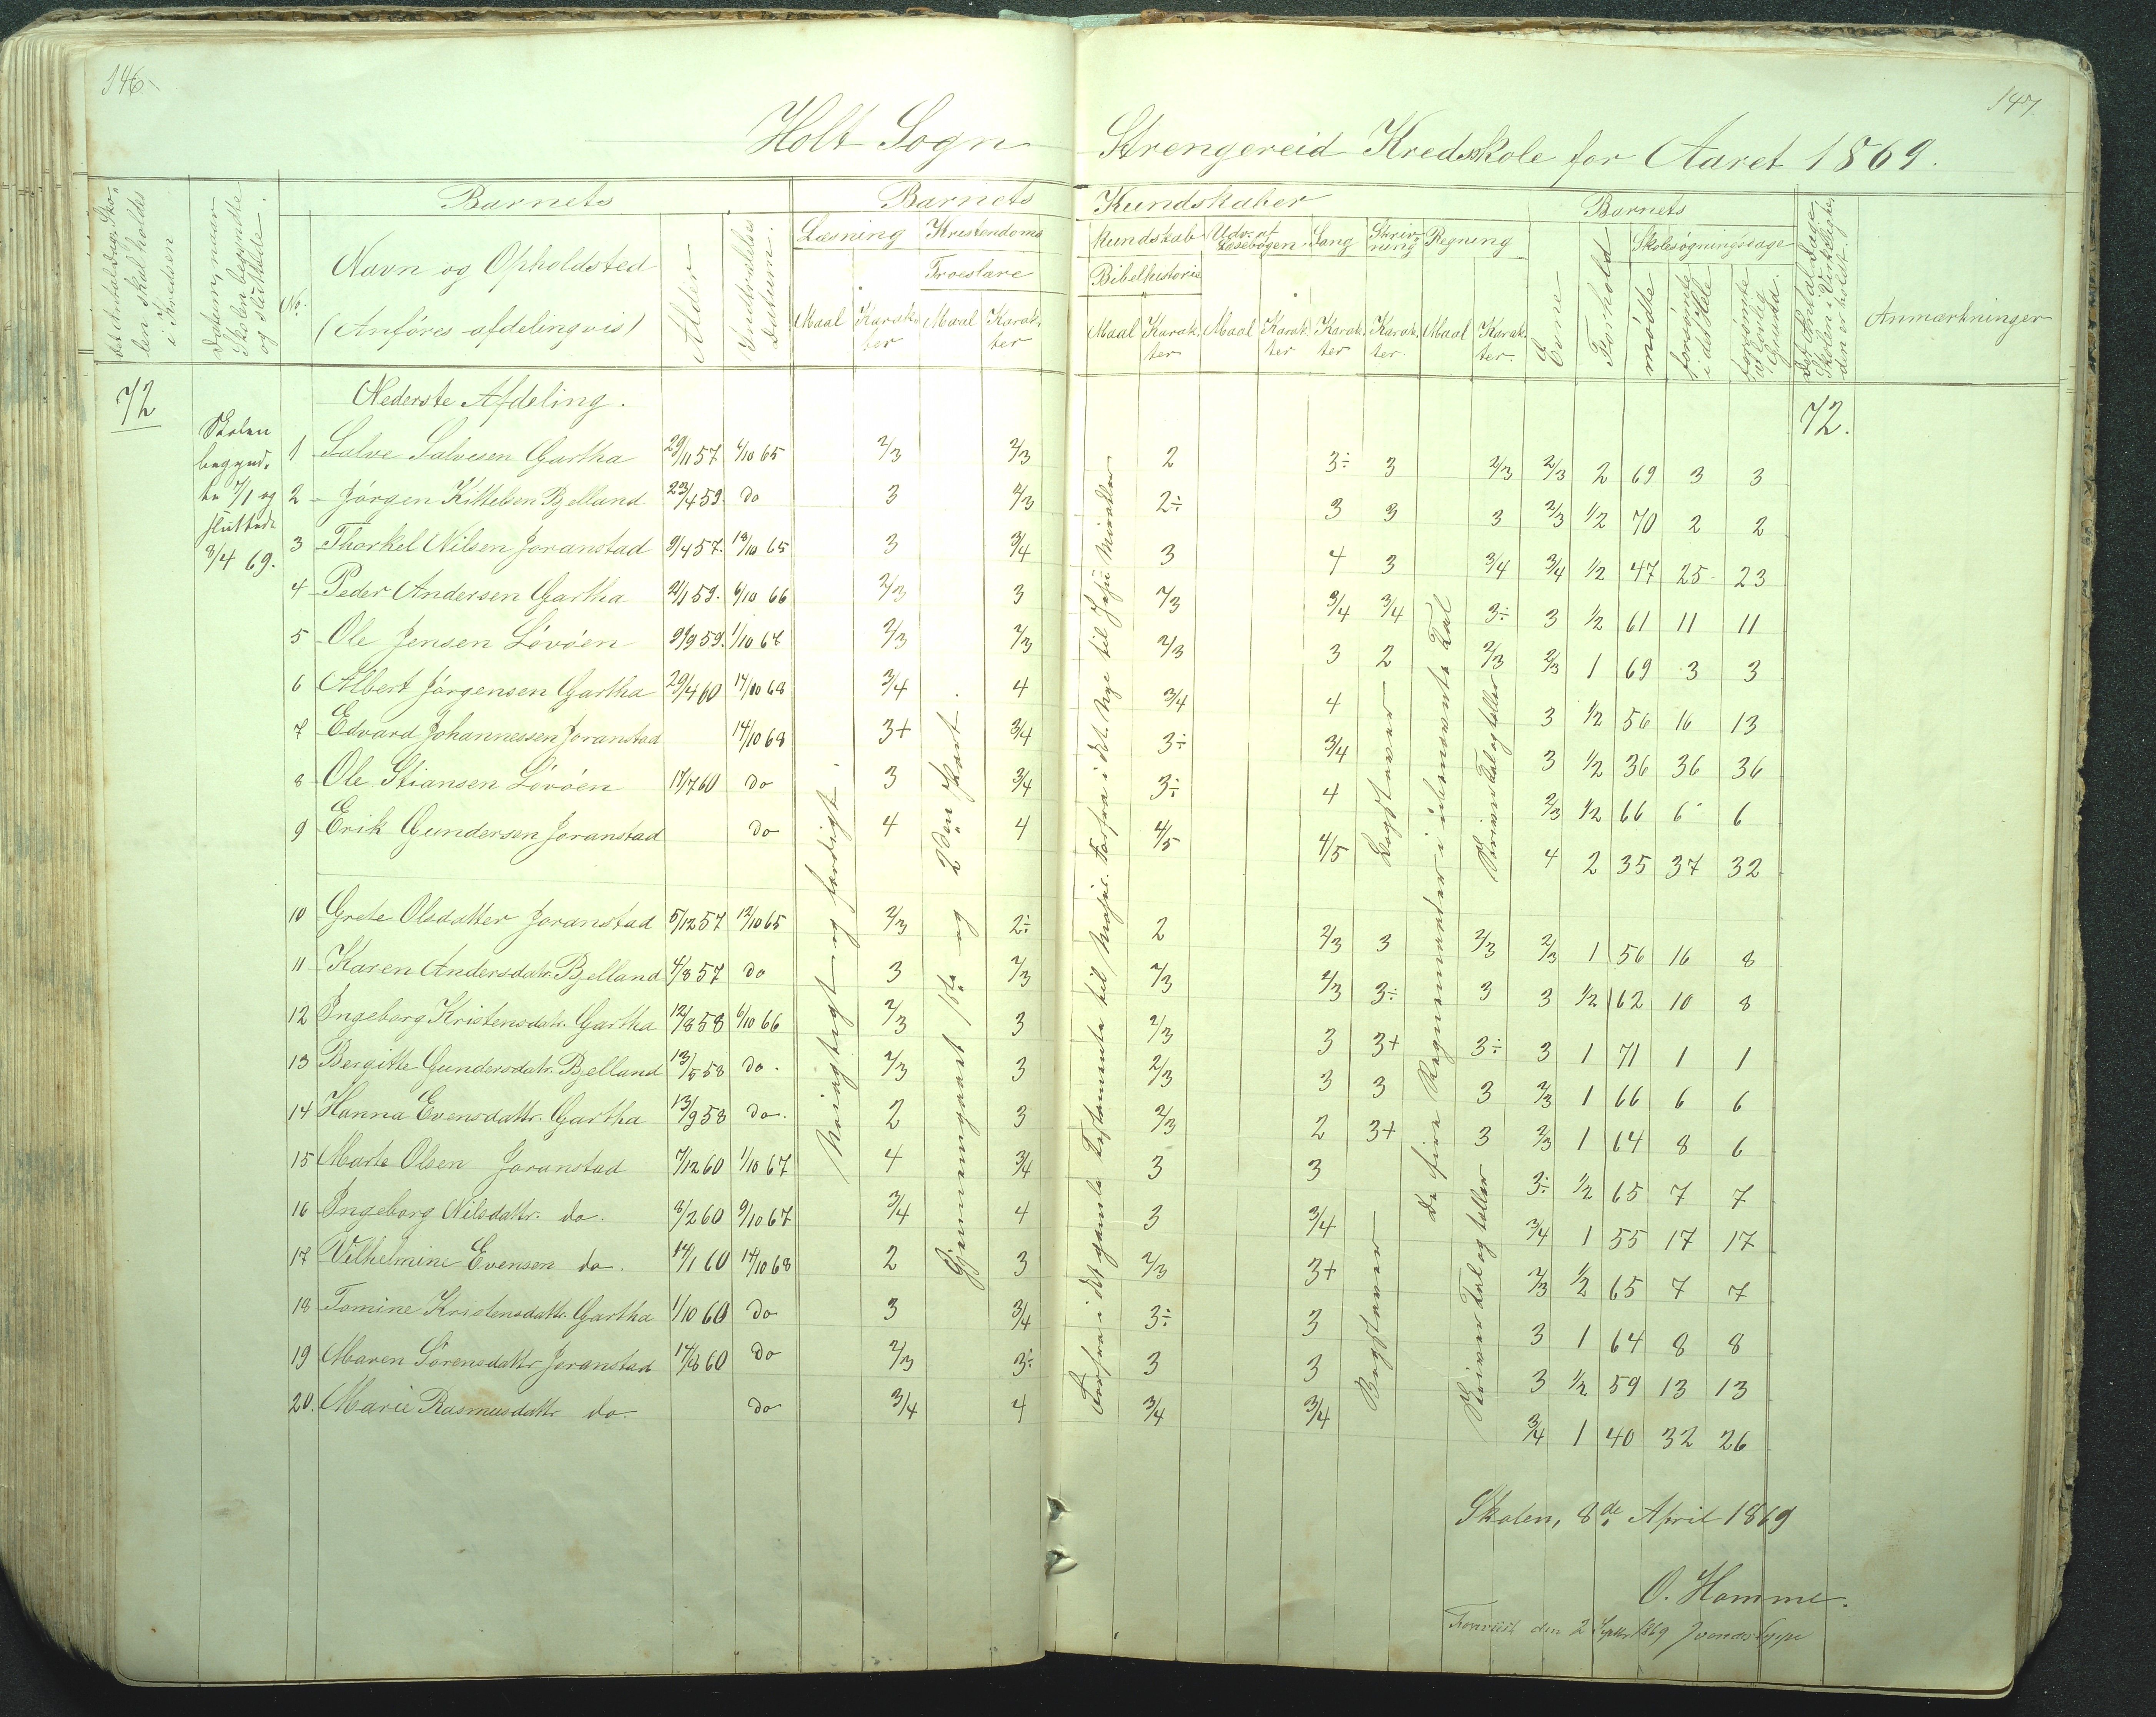 146
147.
Holt Sogn
Strengereid Kredsskole for Aaret 1869.
Det Antal Dage Skolen skal holdes i Kredsen
Datum, naar Skolen begyndte og sluttede.
Barnets
No.
Navn og Opholdsted
(Anføres afdelingvis)
Alder
Indtrædelses Datum.
Barnets Kundskaber
Læsning
Kristendoms Kundskab
Udv. af Læsebogen
Sang
Skrivning
Regning
Troeslære
Bibelhistorie
Maal Karakter Maal Karakter Maal Karakter Maal Karakter Karakter Karakter Maal Karakter
Barnets
Evne
Forhold
Skolesøgningsdage
mødte
forsømte i det Hele
forsømte af lovlig Grund
Det Antal Dage Skolen i Virkeligheden er holdt.
Anmærkninger
72
Nederste Afdeling.
72.
Skolen
begynd.
te 7/1 og
sluttede
8/4 69.
1 Salve Salvesen Gartha 29/11 57 6/10 65 2/3 2/3 2 3÷ 3 2/3 2/3 2 69 3 3
2 Jörgen Kittelsen Bjelland 23/4 59. do 3 2/3 2÷ 3 3 3 2/3 1/2 70 2 2
3 Thorkel Nilsen Joranstad 9/4 57. 19/10 65 3 3/4 3 4 3 3/4 3/4 1/2 47 25 23
4 Peder Andersen Gartha 2/1 59. 6/10 66 2/3 3 2/3 3/4 3/4 3÷ 3 1/2 61 11 11
5 Ole Jensen Lövöen 9/9 59. 1/10 67 2/3 2/3 2/3 3 2 2/3 2/3 1 69 3 3
6 Albert Jörgensen Gartha 29/4 60 14/10 68 3/4 4 3/4 4 3 1/2 56 16 13
7 Edvard Johannessen Joranstad 14/10 68 3+ 3/4 3÷ 3/4 3 1/2 36 36 36
8 Ole Stiansen Lövöen 17/7 60 do 3 3/4 3÷ 4 2/3 1/2 66 6 6
9 Erik Gundersen Joranstad do 4 4 4/5 4/5 4 2 35 37 32
10 Grete Olsdatter Joranstad 5/12 57 12/10 65 2/3 2÷ 2 2/3 3 2/3 2/3 1 56 16 8
11 Karen Andersdatr. Bjelland 4/8 57 do 3 2/3 2/3 2/3 3÷ 3 3 1/2 62 10 8
12 Ingeborg Kristensdatr. Gartha 12/8 58 6/10 66 2/3 3 2/3 3 3+ 3÷ 3 1 71 1 1
13 Bergitte Gundersdatr. Bjelland 13/5 58 do. 2/3 3 2/3 3 3 3 2/3 1 66 6 6
14 Hanna Evensdattr. Gartha 13/9 58 do. 2 3 2/3 2 3+ 3 2/3 1 64 8 6
15 Marte Olsen Joranstad 7/12 60 1/10 67 4 3/4 3 3 3÷ 1/2 65 7 7
16 Ingeborg Nilsdattr. do. 8/2 60 9/10 67 3/4 4 3 3/4 3/4 1 55 17 17
17 Vilhelmine Evensen do. 14/1 60 14/10 68 2 3 2/3 3+ 2/3 1/2 65 7 7
18 Tomine Kristensdattr. Gartha 1/10 60 do 3 3/4 3÷ 3 3 1 64 8 8
19 Maren Sörensdattr. Joranstad 14/8 60 do 2/3 3÷ 3 3 3 1/2 59 13 13
20. Marie Rasmusdattr do. do 3/4 4 3/4 3/4 3/4 1 40 32 26
Nøiagtigt og færdigt.
Gjennemgaaet 1ste og 2den Part.
Forfra i det gamle Testamente til Moses. Forfra i det Nye til Jesu Mirakler
Bogstaver
Bogstaver
De fire Regningsarter i ubenævnte Tal
Skriver Tal og tæller
Skriver Tal og tæller
Skolen, 8de April 1869
O. Homme.
den 2 Septbr 1869